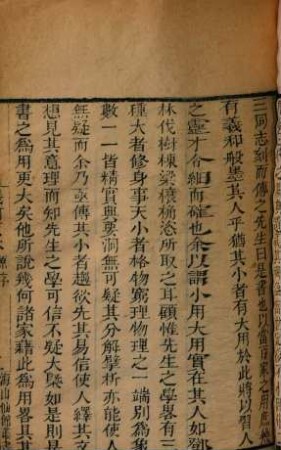 三同志刻而傳之先生曰是書也以當百家之用庶幾
有羲和般墨其人乎猶其小者有大用於此將以習人
之靈才令細而確也余以謂小用大用實在其人如鄧
林伐樹棟梁榱桷恣所取之耳顧惟先生之學畧有三
種大者修身事天小者格物窮理物理之一端別爲象
數一一皆精實典要洞無可疑其分解擘析亦能使人
無疑而余乃亟傳其小者趨欲先其易信使人繹其文
想見其意理而知先生之學可信不疑大槩如是則是
書之爲用更大矣他所說幾何諸家藉此爲用畧具其
海山仙館叢書